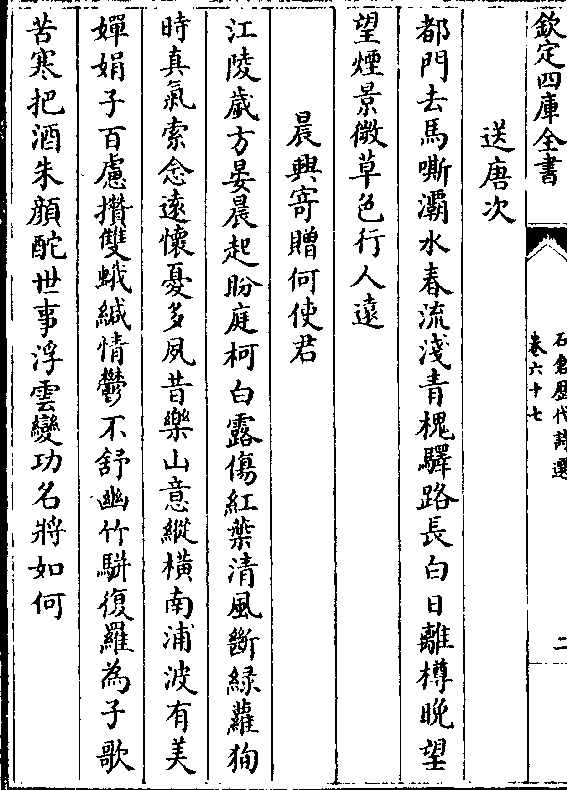 欽定四庫全書
石倉歷代詩選
卷六十七
二
送唐次
都門去馬嘶灞水春流淺青槐驛路長白日離樽晚望
望煙景微草色行人遠
晨興寄贈何使君
江陵歲方晏晨起盼庭柯白露傷紅葉清風斷綠蘿徇
時真氣索念遠懷憂多夙昔樂山意縱橫南浦波有美
嬋娟子百慮攢雙蛾緘情鬱不舒幽竹駢復羅為子歌
苦寒把酒朱顏酡世事浮雲變功名將如何